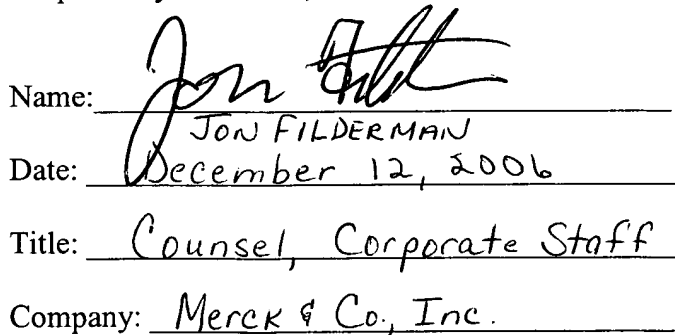 Name: Jon
JON FILDERMAN
Date: December 12, 2006
Title: Counsel, Corporate Staff
Company: Merck & Co., Inc.